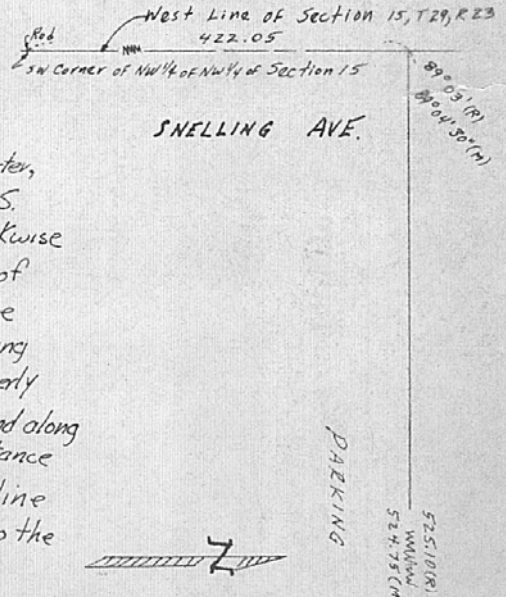 West Line of Section 15, T29, R23
Rod
422.05
SW Corner of NW 1/4 of NW 1/4 of Section 15
89° 03' (R)
89° 04' 30" (M)
SNELLING AVE.
ter,
S.
kwise
of
e
ng
erly
nd along
tance
line
o the
PARKING
525.10 (R)
524.75 (M
Z